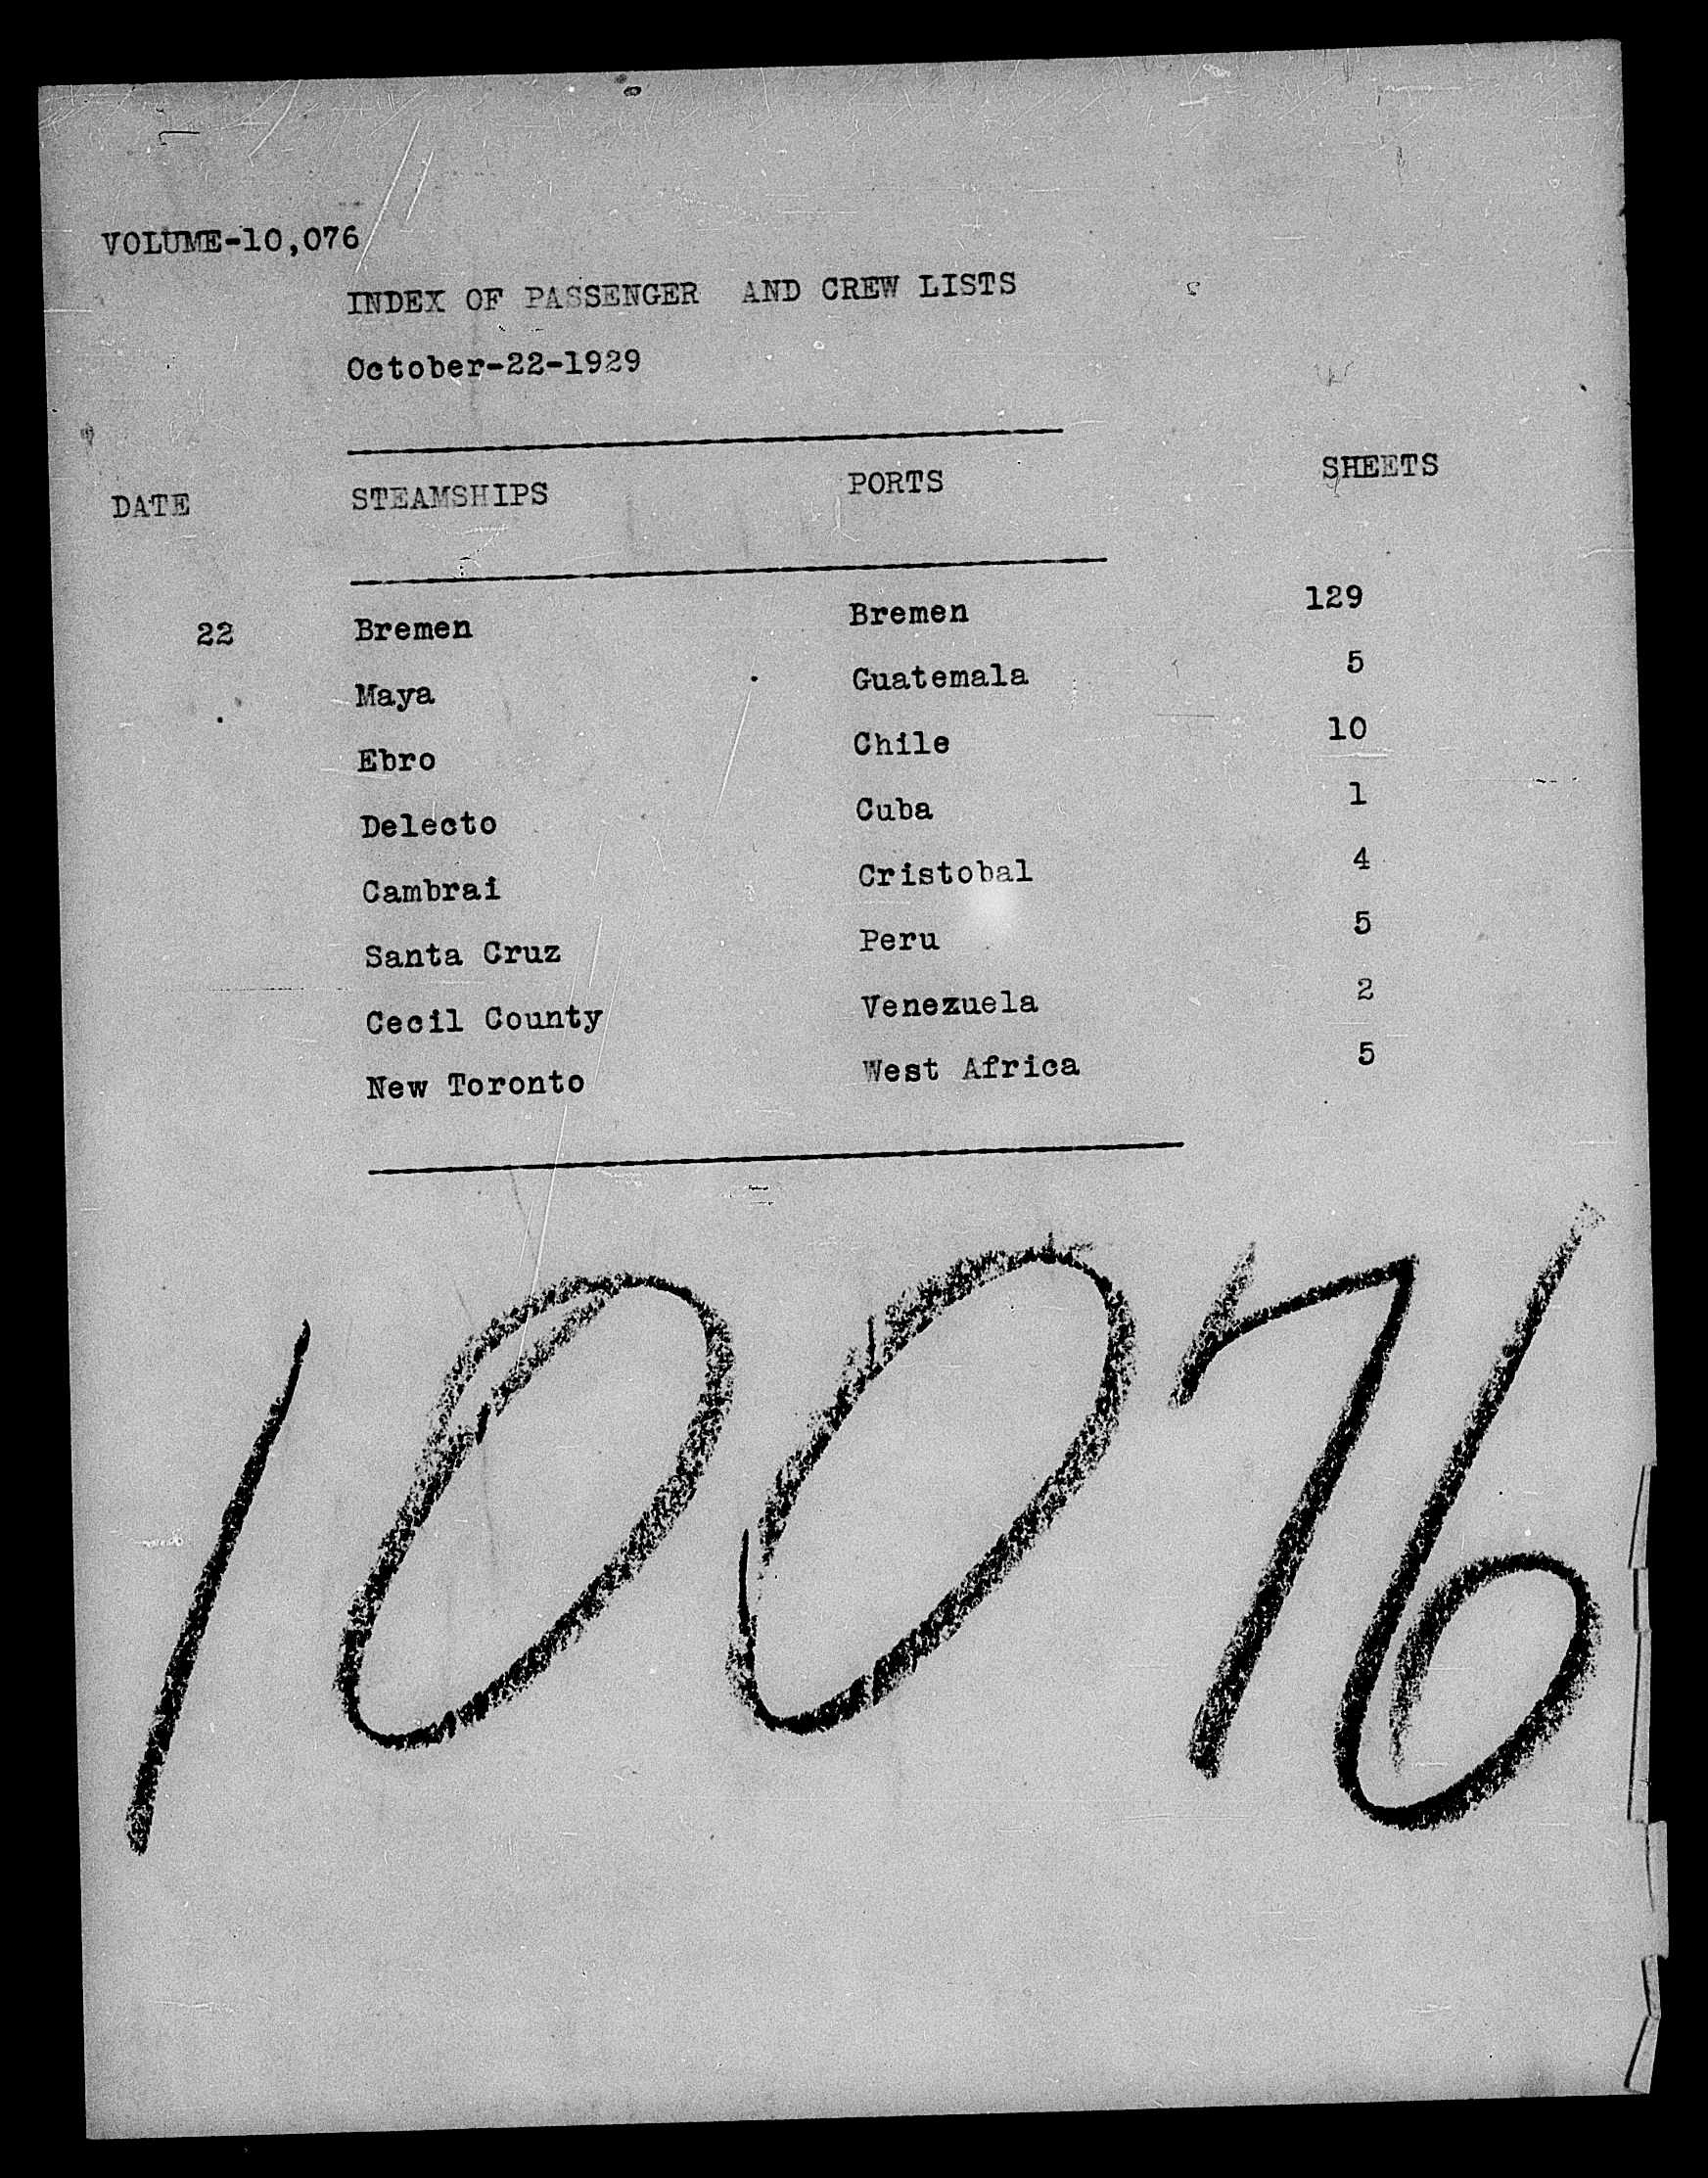 VOLUME-10,076
INDEX OF PASSENGER AND CREW LISTS
October-22-1929
DATE STEAMSHIPS PORTS SHEETS
22 Bremen Bremen 129
Maya Guatemala 5
Ebro Chile 10
Delecto Cuba 1
Cambrai Cristobal 4
Santa Cruz Peru 5
Cecil County Venezuela 2
New Toronto West Africa 5
10076